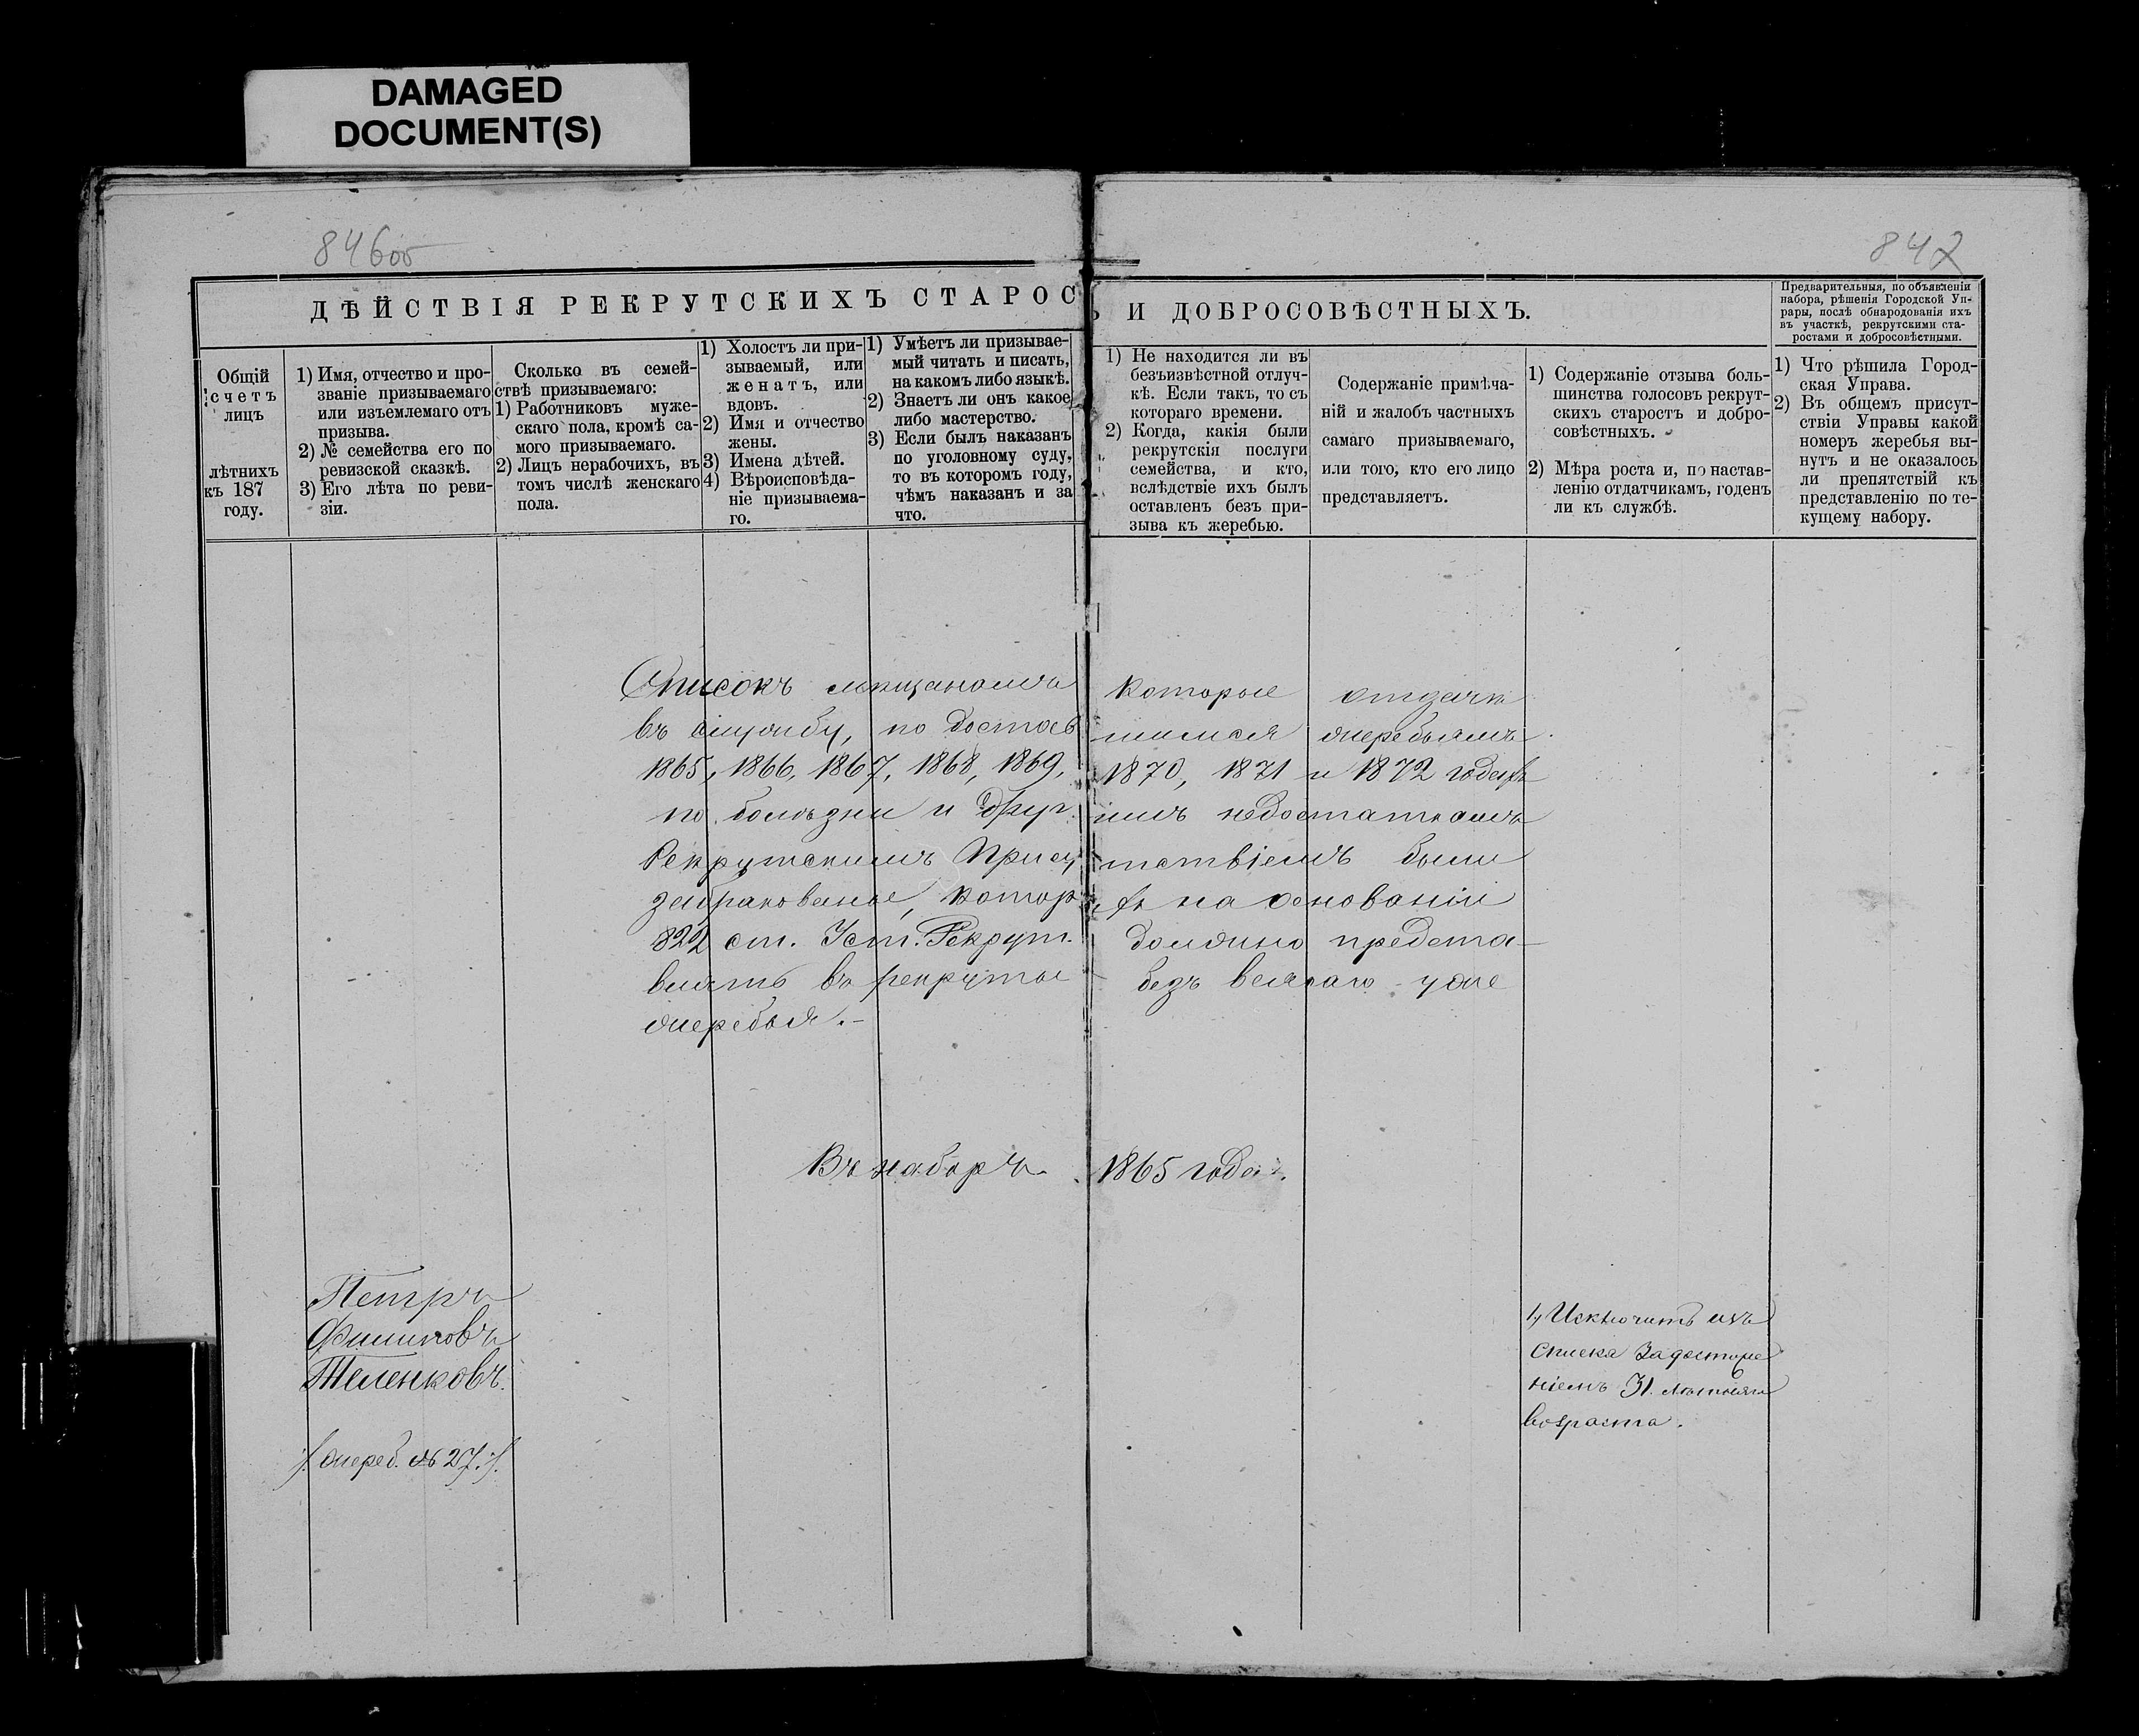 DAMAGED
DOCUMENT(S)
846об
847
ДѢЙСТВІЯ РЕКРУТСКИХЪ СТАРОС
Ъ И ДОБРОСОВѢСТНЫХЪ.
Предварительныя, по объявленіи
набора, рѣшенія Городской Уп-
рары, послѣ обнародованія ихъ
въ участкѣ, рекрутскими ста-
ростами и добросовѣстными.
Общій
счетъ
лицъ
лѣтнихъ
къ 187
году.
1) Имя, отчество и про-
званіе призываемаго
или изъемлемаго отъ
призыва.
2) № семейства его по
ревизской сказкѣ.
3) Его лѣта по реви-
зіи.
Сколько въ семей-
ствѣ призываемаго:
1) Работниковъ муже-
скаго пола, кромѣ са-
мого призываемаго.
2) Лицъ нерабочихъ, въ
томъ числѣ женскаго
пола.
1) Холостъ ли при-
зываемый, или
женатъ, или
вдовъ.
2) Имя и отчество
жены.
3) Имена дѣтей.
4) Вѣроисповѣда-
ніе призываема-
го.
1) Умѣетъ ли призывае-
мый читать и писать,
на какомъ либо языкѣ.
2) Знаетъ ли онъ какое
либо мастерство.
3) Если былъ наказанъ
по уголовному суду,
то въ которомъ году,
чѣмъ наказанъ и за
что.
1) Не находится ли въ
безъизвѣстной отлуч-
кѣ. Если такъ, то съ
котораго времени.
2) Когда, какія были
рекрутскія послуги
семейства, и кто,
вслѣдствіе ихъ былъ
оставленъ безъ при-
зыва къ жеребью.
Содержаніе примѣча-
ній и жалобъ частныхъ
самаго призываемаго,
или того, кто его лицо
представляетъ.
1) Содержаніе отзыва боль-
шинства голосовъ рекрут-
скихъ старостъ и добро-
совѣстныхъ.
2) Мѣра роста и, по настав-
ленію отдатчикамъ, годенъ
ли къ службѣ.
1) Что рѣшила Город-
ская Управа.
2) Въ общемъ присут-
ствіи Управы какой
номеръ жеребья вы-
нутъ и не оказалось
ли препятствій къ
представленію по те-
кущему набору.
Списокъ мѣщанамъ которые
въ службу, по достав шимся жеребьямъ
1865, 1866, 1867, 1868, 1869, 1870, 1871 и 1872 годахъ
по болѣзни и друг имъ недостаткамъ
Рекрутскимъ Прису тствіемъ были
забракованые, котор ѣ на основаніи
822 ст. Уст. Рекрут. должно предста-
влять въ рекруты безъ всякаго уже
жеребья.-
Въ наборъ 1865 года.
Петръ
Филиповъ
Теленковъ.
/. жереб. № 27./.
1, Исключить изъ
списка за достиже
ніемъ 31. лѣтняго
возраста.